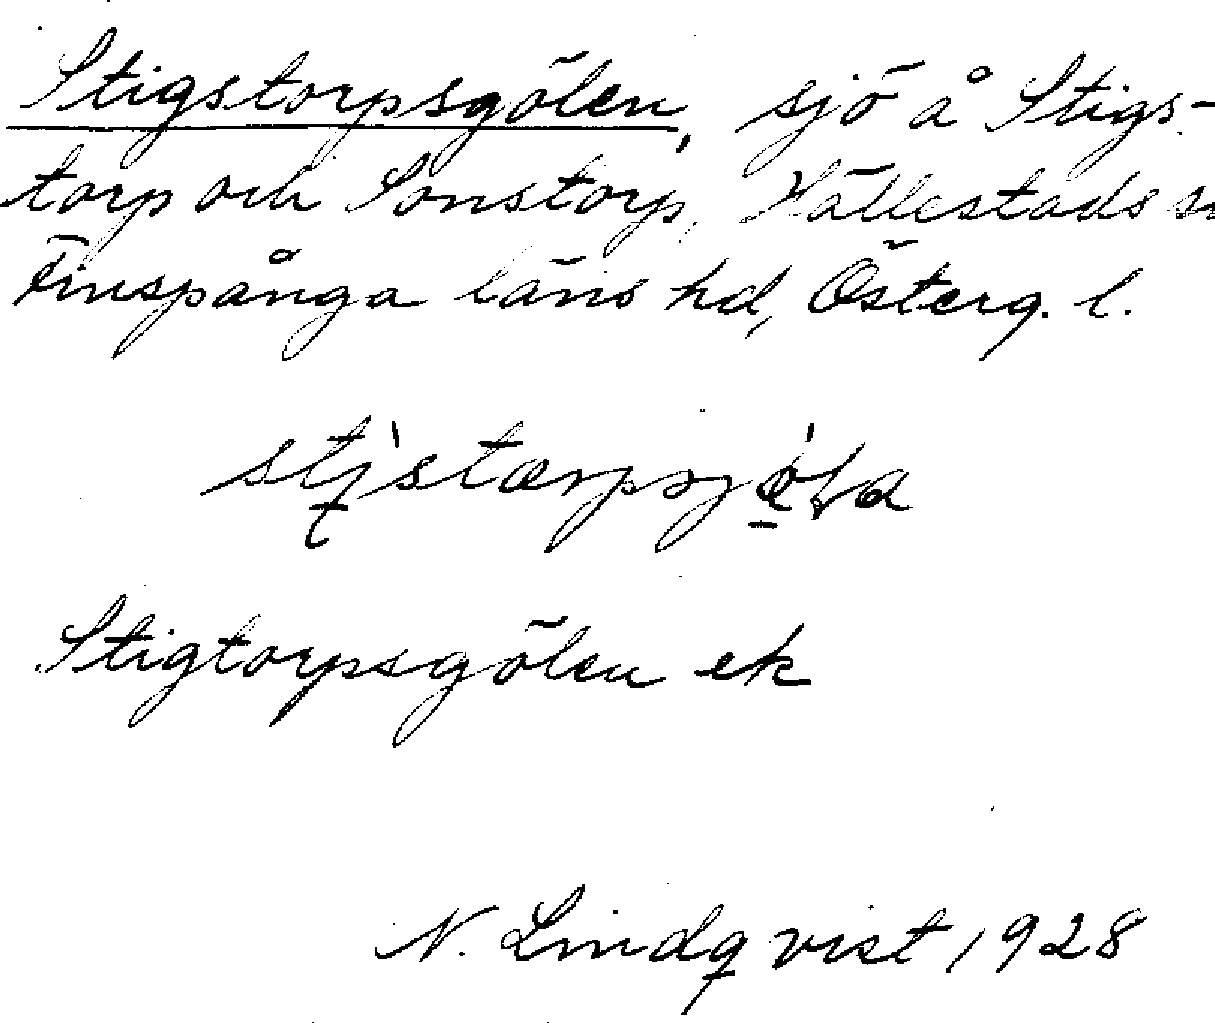 Stigstorpsgölen, sjö å Stigs-
torp och Sonstorp, Hällestads
Finspånga läns hd, Österg. l.
Stigtorpsgölen ek
N. Lindqvist 1928